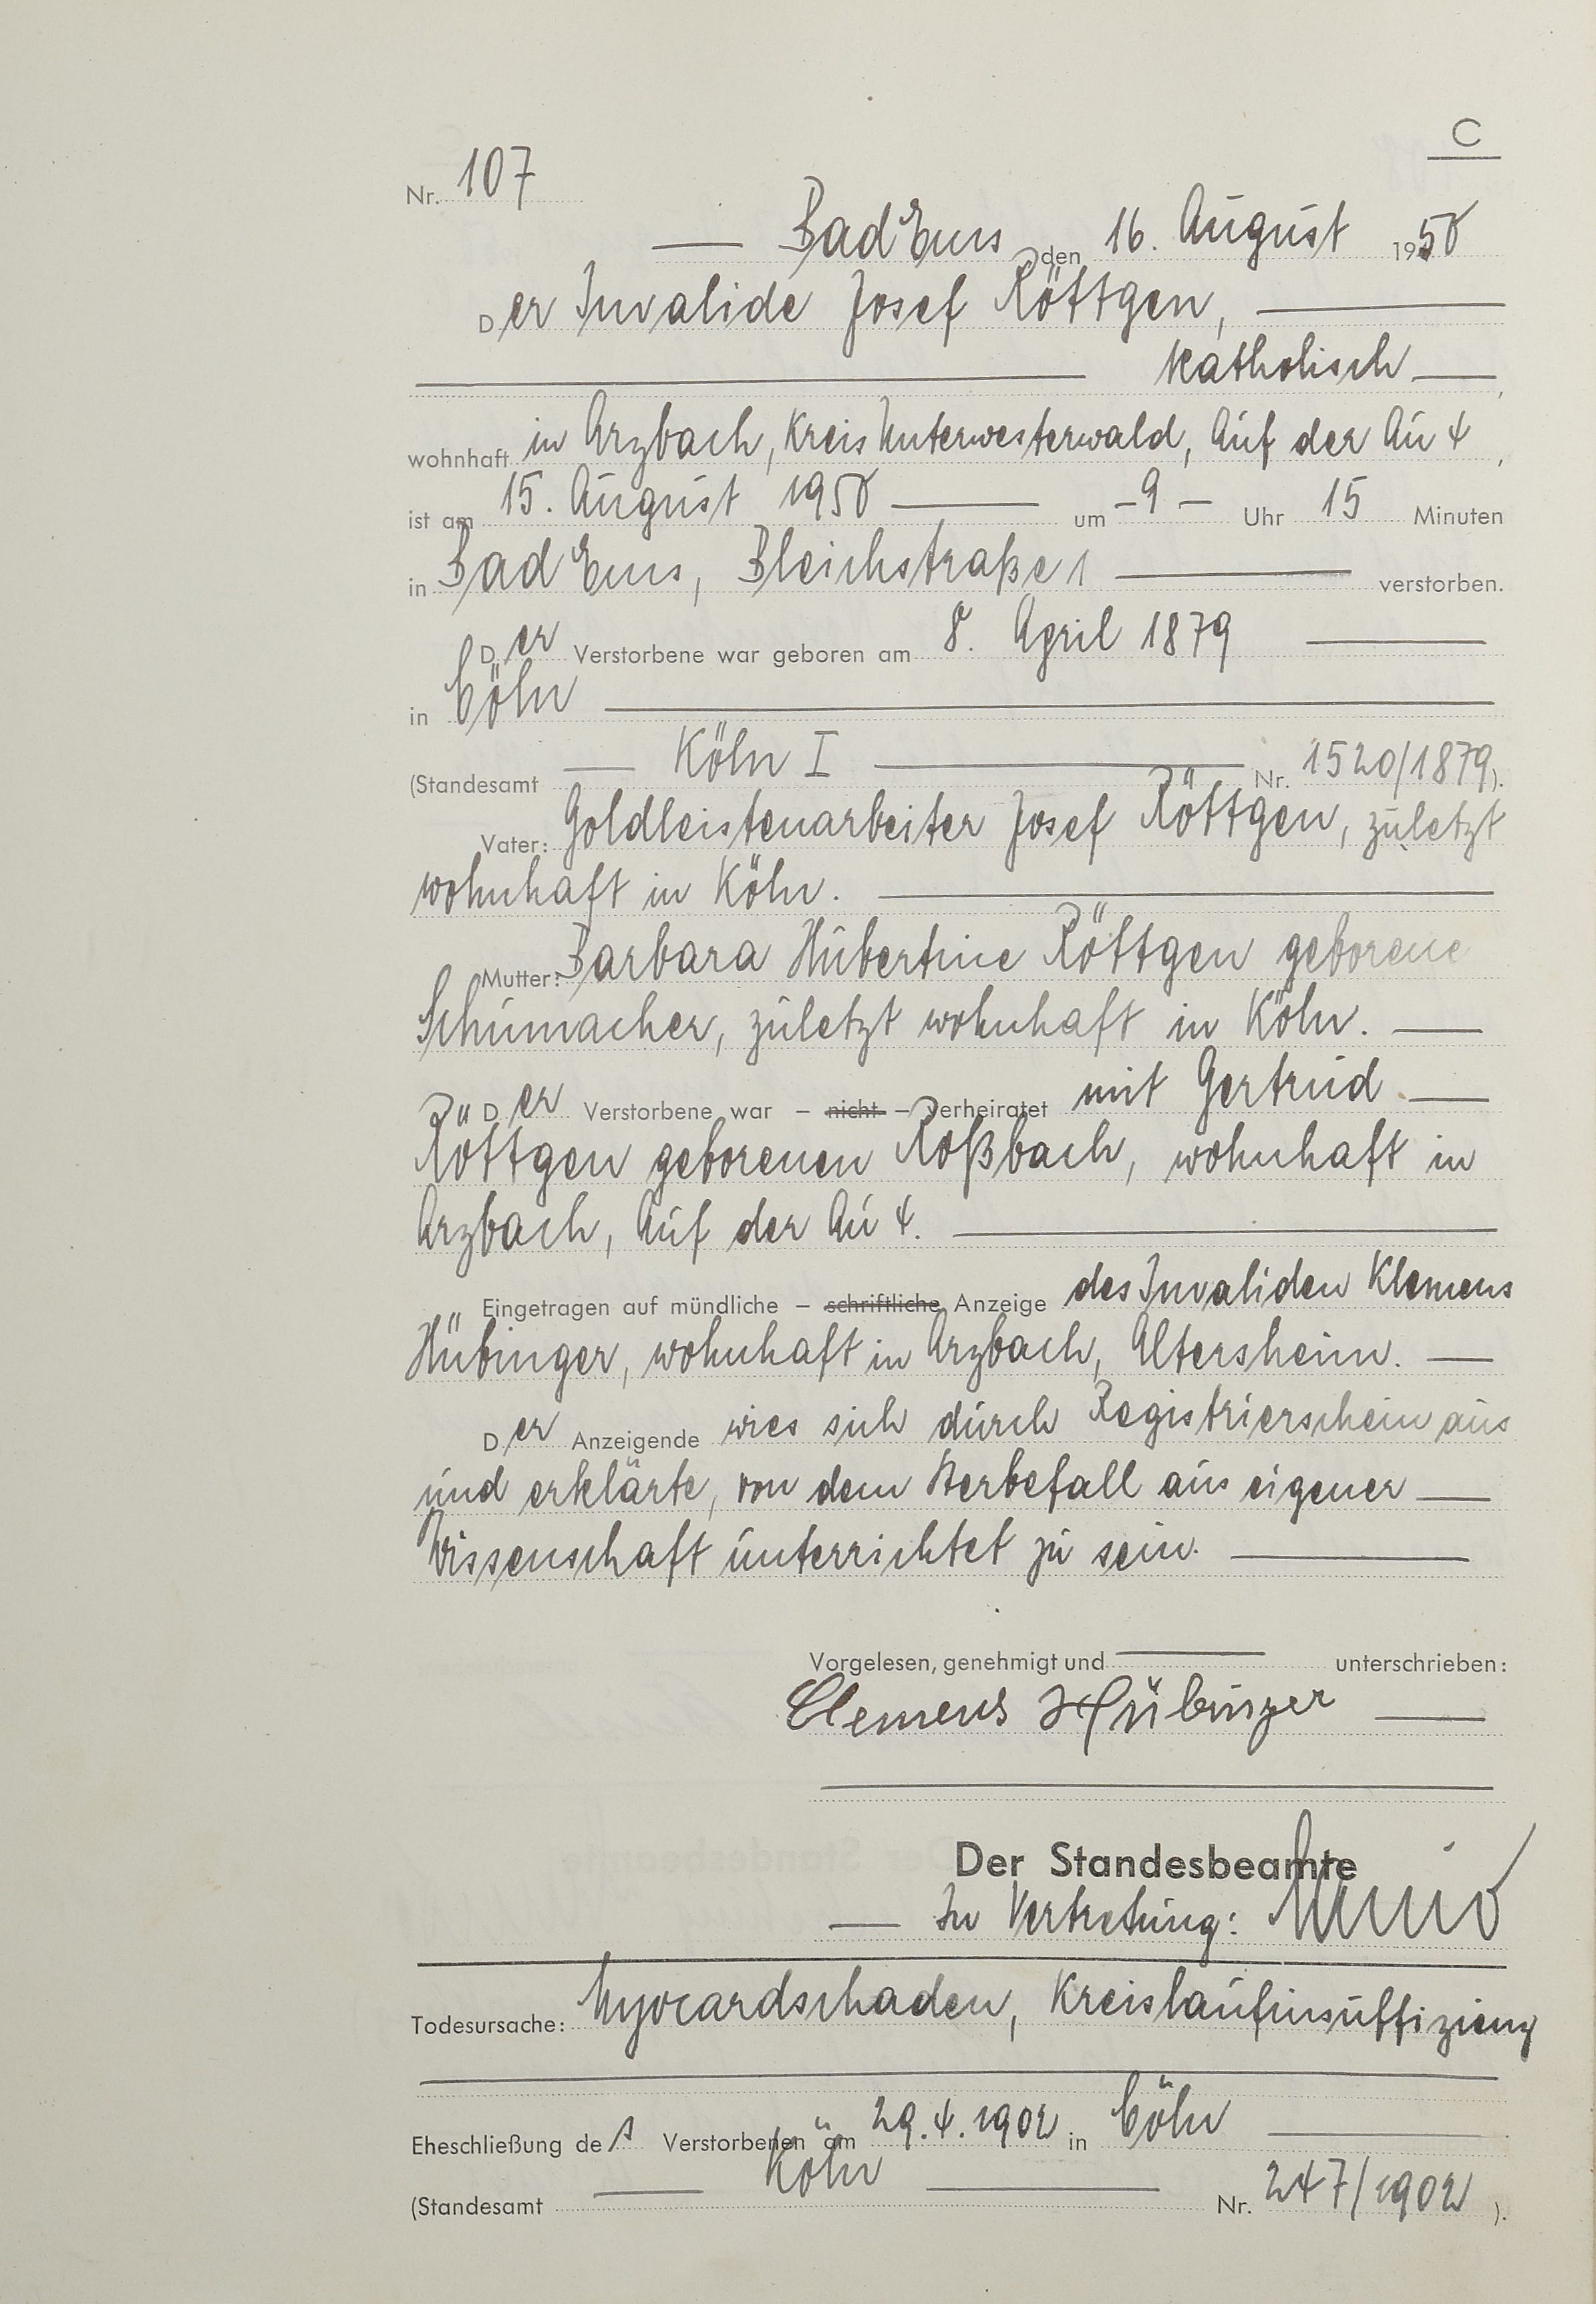 C
Nr. 107
Bad Ems, den 16. August 1950
Der Invalide Josef Röttgen,
katholisch,
wohnhaft in Arzbach, Kreis Unterwesterwald, Auf der Au 4,
ist am 15. August 1950 um - 9 - Uhr 15 Minuten
in Bad Ems, Bleichstraße 1 verstorben.
Der Verstorbene war geboren am 8. April 1879
in Cöln
(Standesamt Köln I Nr. 1520/1879).
Vater: Goldleistenarbeiter Josef Röttgen, zuletzt
wohnhaft in Köln.
Mutter: Barbara Hubertine Röttgen geborene
Schumacher, zuletzt wohnhaft in Köln.
Der Verstorbene war – nicht – verheiratet mit Gertrud
Röttgen geborenen Roßbach, wohnhaft in
Arzbach, Auf der Au 4.
Eingetragen auf mündliche – schriftliche Anzeige des Invaliden Klemens
Hübinger, wohnhaft in Arzbach, Altersheim.
Der Anzeigende wies sich durch Registrierschein aus
und erklärte, von dem Sterbefall aus eigener
Wissenschaft unterrichtet zu sein.
Vorgelesen, genehmigt und unterschrieben:
Clemens Hübinger
Der Standesbeamte
In Vertretung:
Todesursache: Myocardschaden, Kreislaufinsuffizienz
Eheschließung des Verstorbenen am 29.4.1902 in Cöln
(Standesamt Köln Nr. 247/1902).